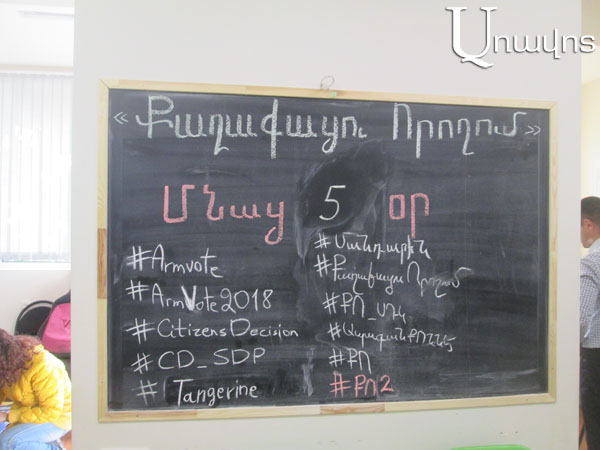 Առավոտ
«Քաղաքացու Որոշում»
Մնաց 5 օր
#Armvote
#ArmVote2018
#CitizensDecision
#CD_SDP
# Tangerine
#Մանդարին
#Քաղաքացու Որոշում
#ՔՈ_ՍԴԿ
#ԱպագանՔՈՆՆԷ
#ՔՈ
#ՔՈ2